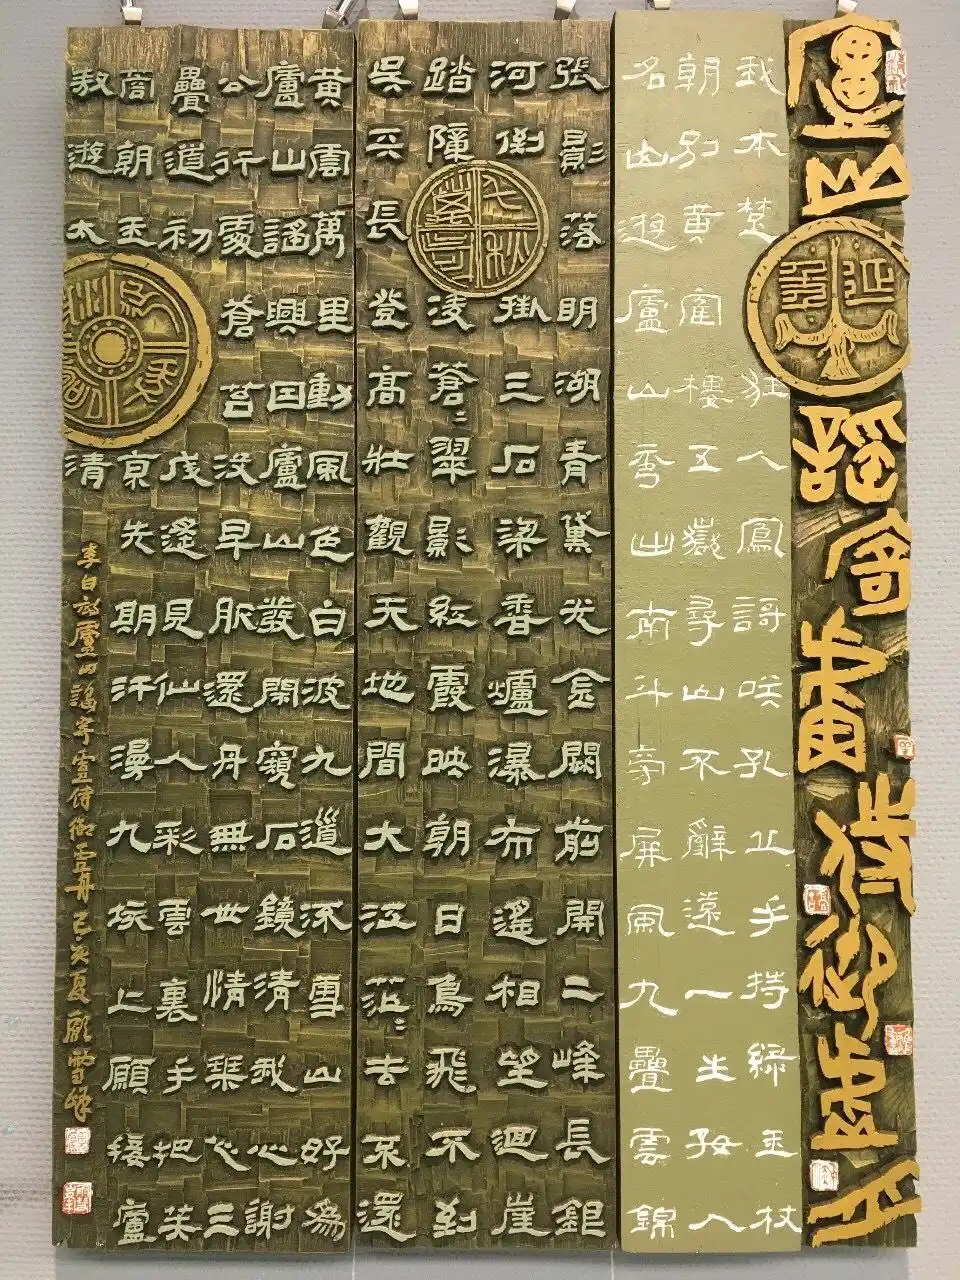 廬山謠寄盧侍御虛舟
我本楚狂人鳳謌咲孔丘手持緑玉杖
朝別黃寉樓五嶽尋山不辭遠一生好入
名山遊廬山秀出南斗旁屏風九疊雲錦
張影落明湖青黛光金闕前開二峰長銀
河倒掛三石梁香爐瀑布遙相望迴崖
踏障凌蒼〻翠影紅霞映朝日鳥飛不到
吳天長登高壯觀天地間大江茫〻去不還
黃雲萬里動風色白波九道流雪山好為
廬山謠興因廬山發閑窺石鏡清我心謝
公行處蒼苔沒早服還丹無世情琴心三
疊道初成遙見仙人彩雲裏手把芙
蓉朝玉京先期汗漫九垓上願接廬
敖遊太清
李白詩廬山謠寄盧侍御虛舟己亥夏顧雪峰